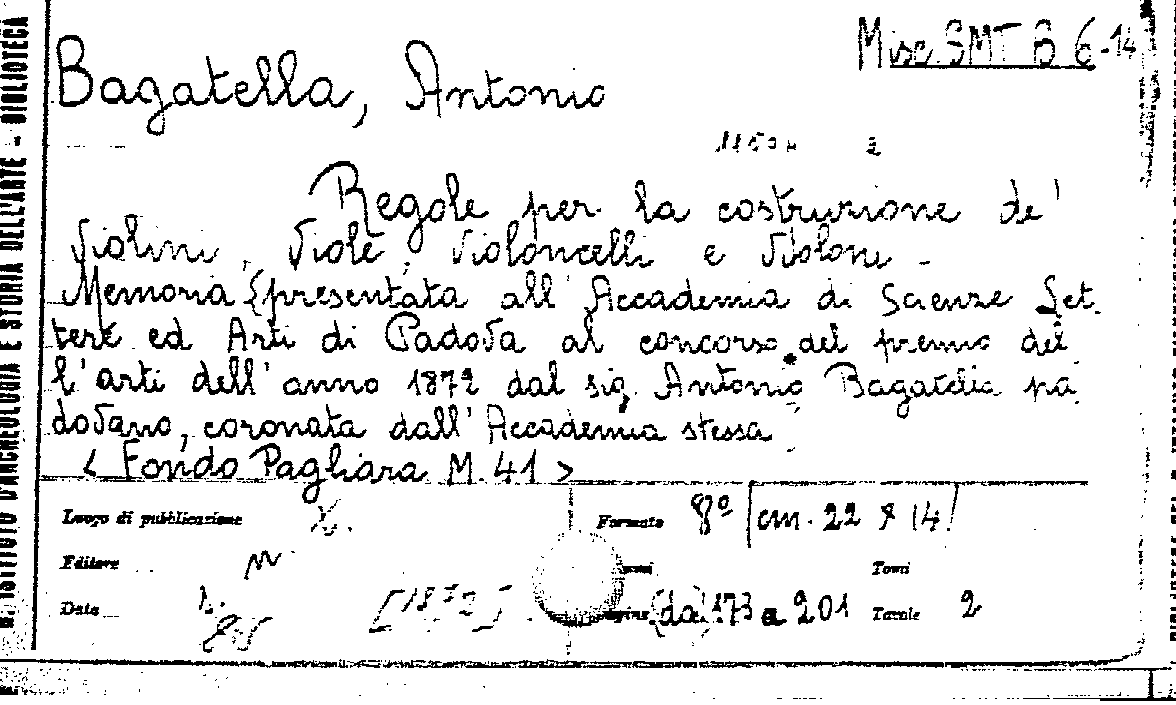 Misc SMT B 6-14
Bagatella, Antonio
Regole per la costruzione de'
Violini, Viole, Violoncelli e Violoni -
Memoria presentata all'Accademia di Scienze Let
tere ed Arti di Padova al concorso del premio del
l'arti dell'anno 1872 dal sig. Antonio Bagatella pa
dovano, coronata dall'Accademia stessa
< Fondo Pagliara M. 41 >
Luogo di pubblicazione
Formato 8º cm. 22 x 14
Editore
Tomi
Data [1872]
(da) 173 a 201 Tavole 2
R. ISTITUTO D'ARCHEOLOGIA E STORIA DELL'ARTE - BIBLIOTECA